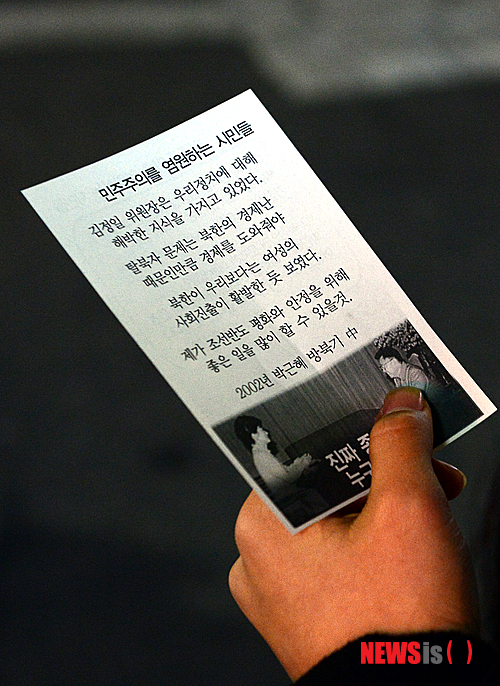 민주주의를 염원하는 시민들
김정일 위원장은 우리정치에 대해
해박한 지식을 가지고 있었다.
탈북자 문제는 북한의 경제난
때문인만큼 경제를 도와줘야
북한이 우리보다는 여성의
사회진출이 활발한 듯 보였다.
제가 조선반도 평화와 안정을 위해
좋은 일을 많이 할 수 있을것.
2002년 박근혜 방북기 中
진짜
NEWSis( )